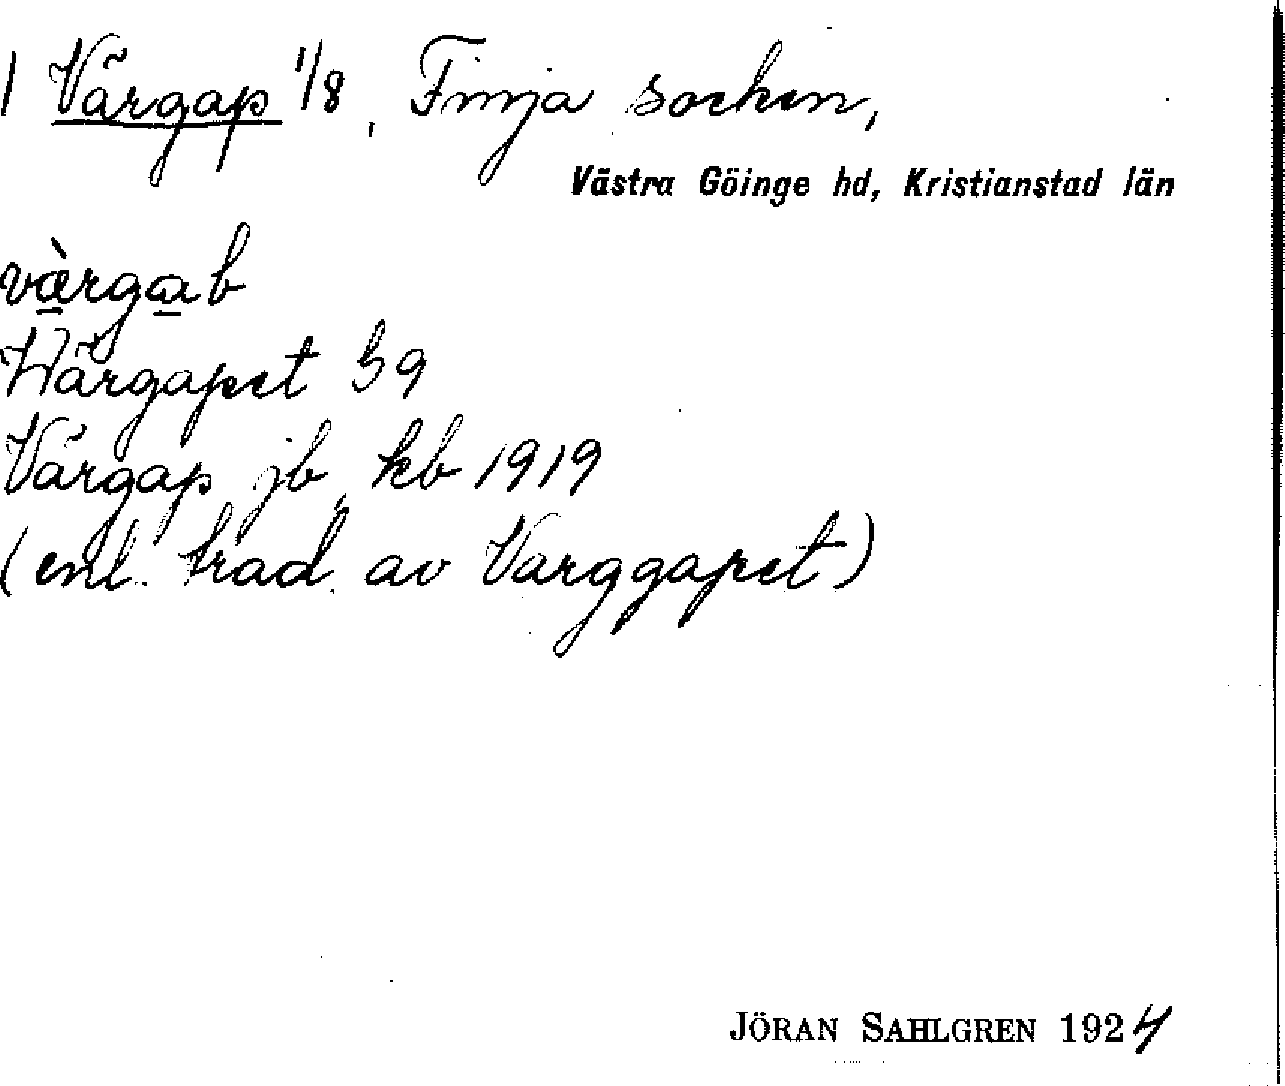 1 Värgap 1/8, Finja socken,
Västra Göinge hd, Kristianstad län
vàrgab
Wärgapet 59
Värgap jb, kb 1919
(enl. trad. av Varggapet)
JÖRAN SAHLGREN 1924